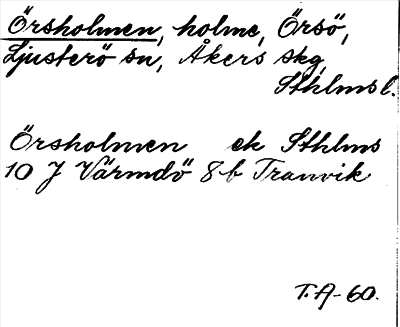 Örsholmen, holme, Örsö,
Ljusterö sn, Åkers skg,
Sthlms l.
Örsholmen ek Sthlms
10 J Värmdö 8b Tranvik
T.A-60.